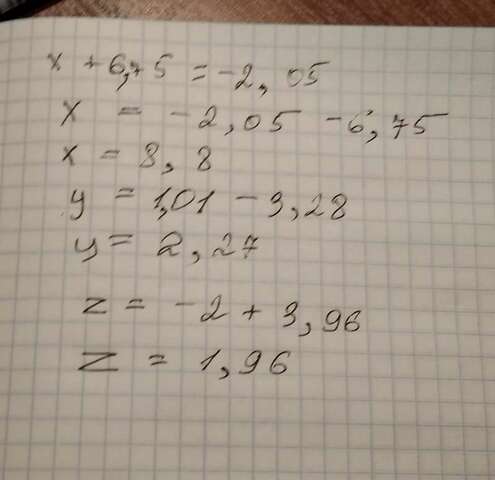 x + 6,75 = -2,05
x = -2,05 - 6,75
x = 8,8
y = 1,01 - 3,28
y = 2,27
z = -2 + 3,96
z = 1,96